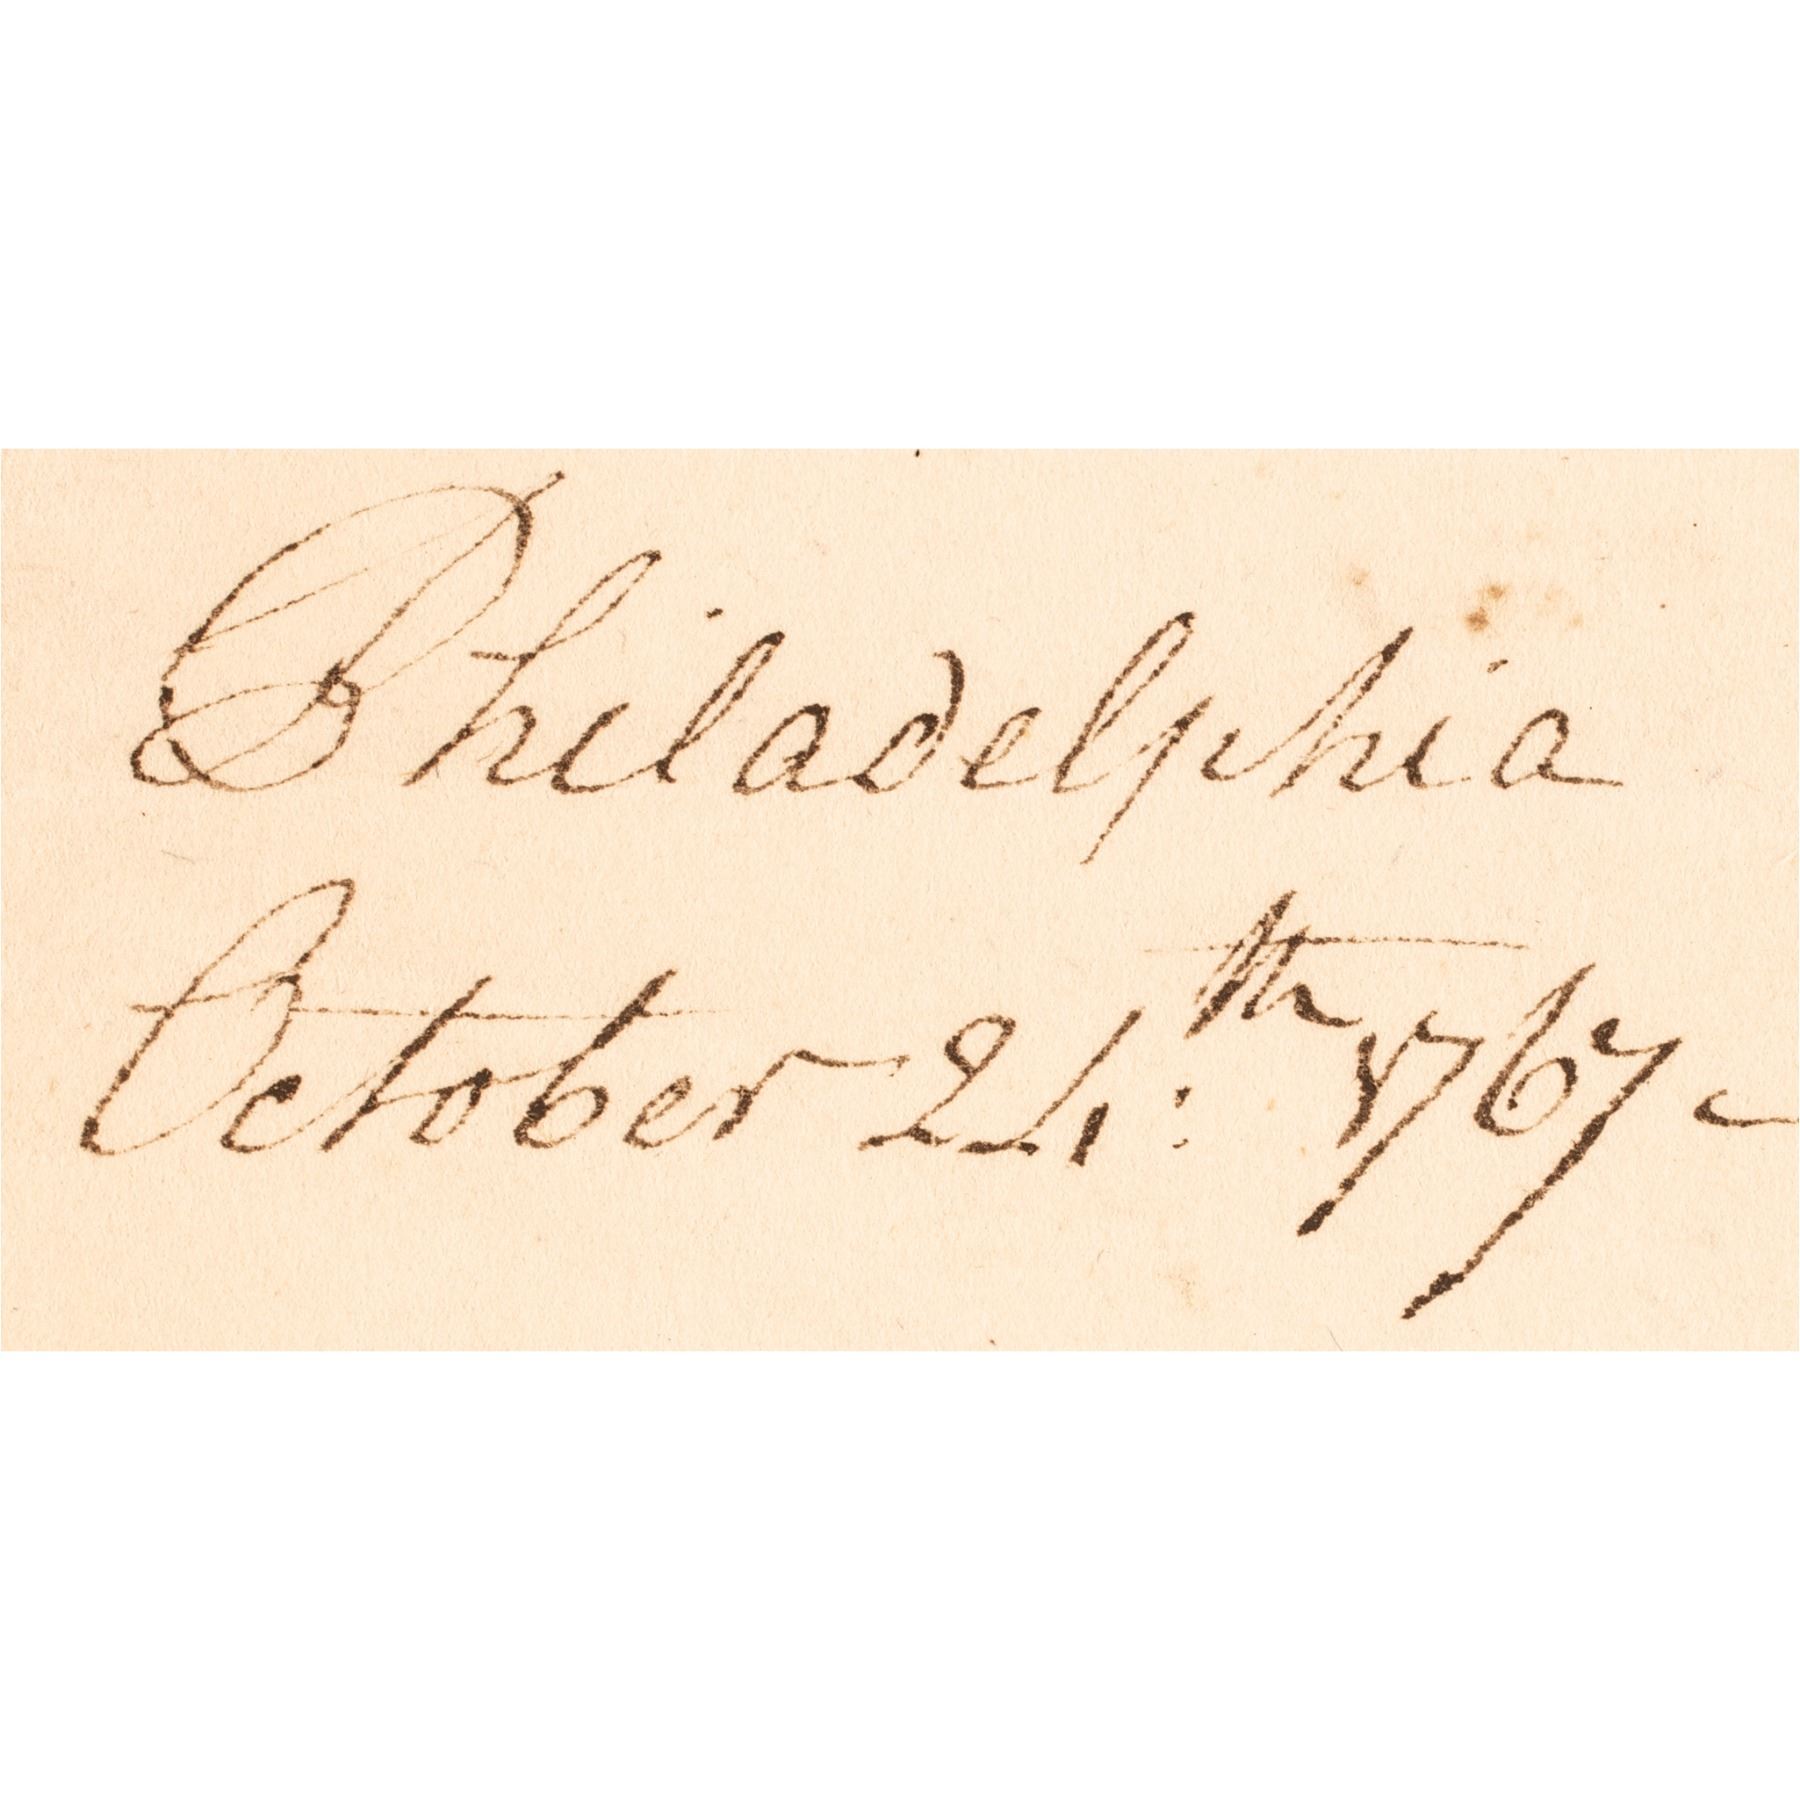 Philadelphia
October 24:th 1767 -